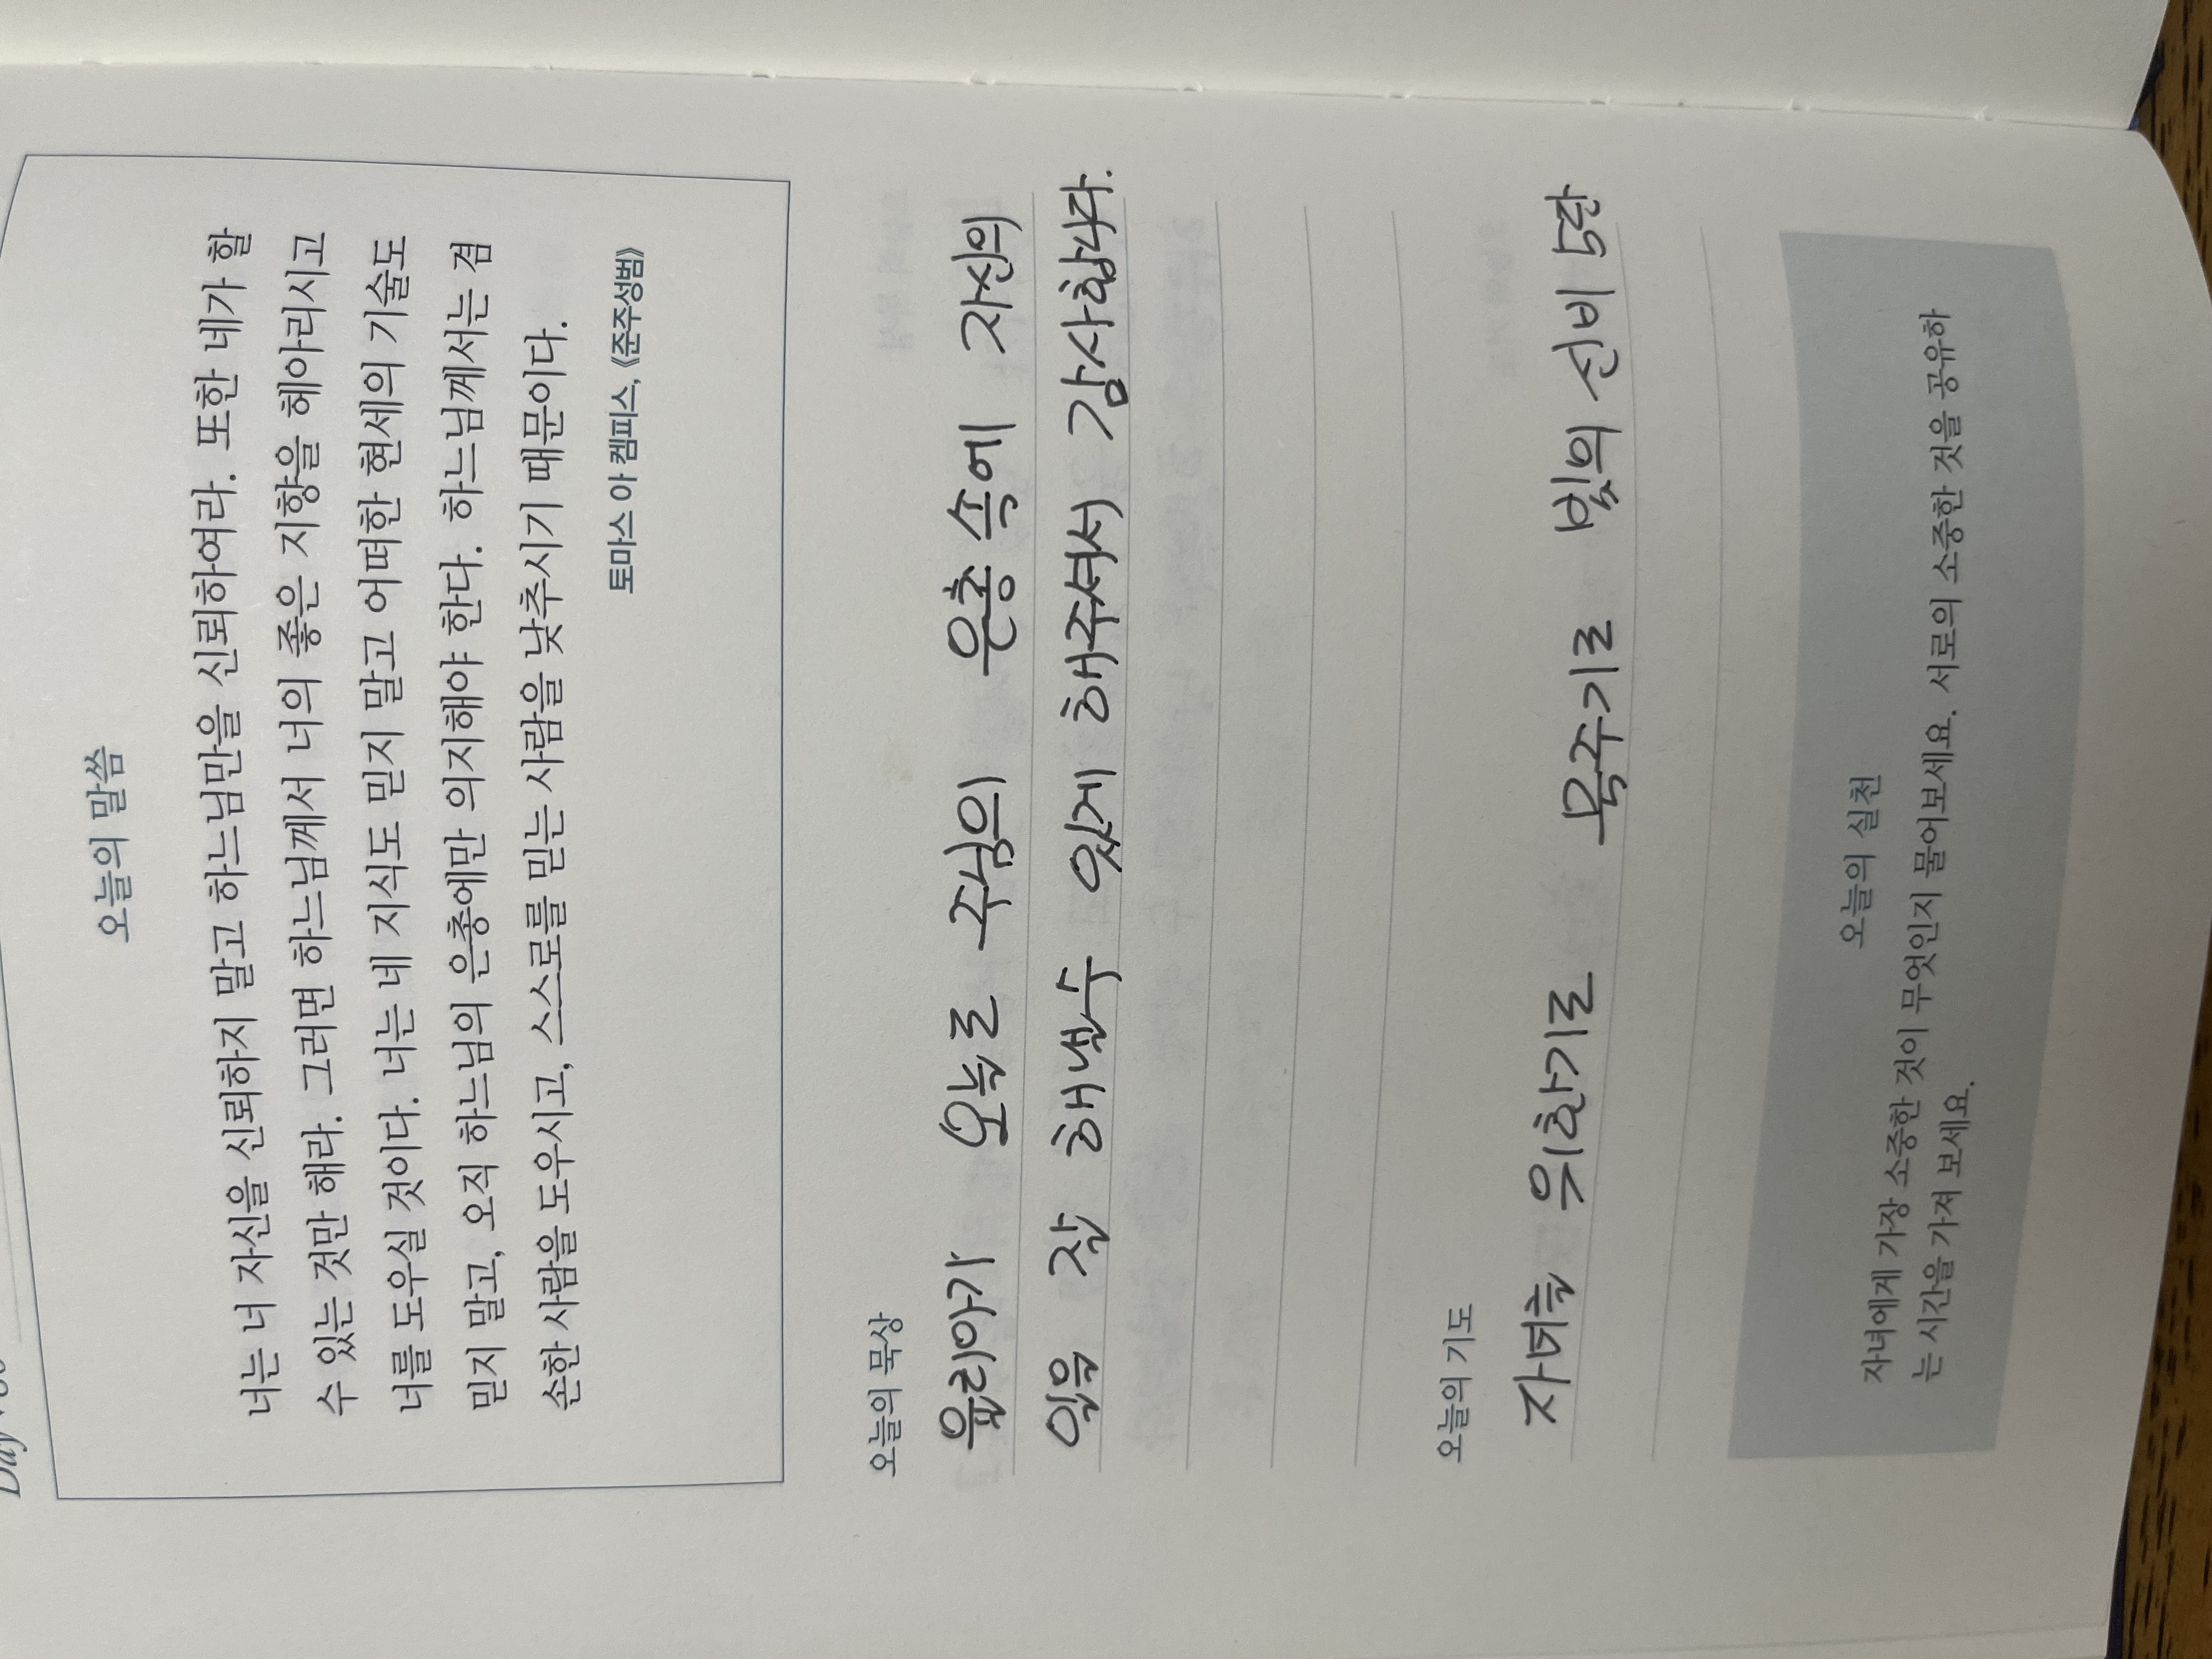 오늘의 말씀
너는 너 자신을 신뢰하지 말고 하느님만을 신뢰하여라. 또한 네가 할
수 있는 것만 해라. 그러면 하느님께서 너의 좋은 지향을 헤아리시고
너를 도우실 것이다. 너는 네 지식도 믿지 말고 어떠한 현세의 기술도
믿지 말고, 오직 하느님의 은총에만 의지해야 한다. 하느님께서는 겸
손한 사람을 도우시고, 스스로를 믿는 사람을 낮추시기 때문이다.
토마스 아 켐피스, 《준주성범》
오늘의 묵상
율리아가 오늘로 주님의 은총 속에 자신의
일을 잘 해낼 수 있게 해주셔서 감사합니다.
오늘의 기도
자녀를 위한기도 묵주기도 빛의 신비 5단
오늘의 실천
자녀에게 가장 소중한 것이 무엇인지 물어보세요. 서로의 소중한 것을 공유하
는 시간을 가져 보세요.